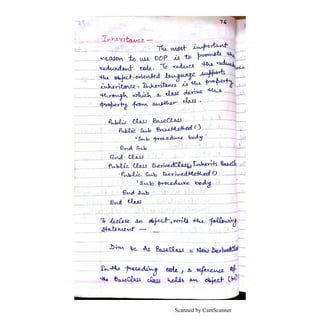 76
Inheritance —
The most important
reason to use OOP is to promote the
redundant code. To reduce the
the object-oriented language supports
inheritance. Inheritance is the property
through which a class derive the
property from another class.
Public Class BaseClass
Public Sub BaseMethod()
'Sub procedure body
End Sub
End Class
Public Class DerivedClass, Inherits
Public Sub DerivedMethod()
'Sub procedure body
End Sub
End Class
To declare an object, write the following
statement —
Dim bc As BaseClass = New
In the preceding code, a reference of
the BaseClass class holds an object (bc)
Scanned by CamScanner